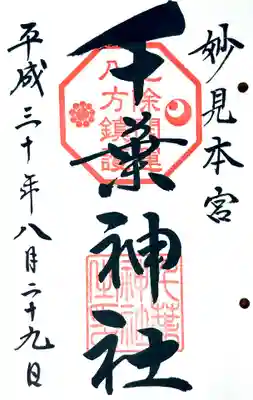 妙見本宮
千葉神社
平成三十年八月二十九日
八方鎮護
千葉
神社